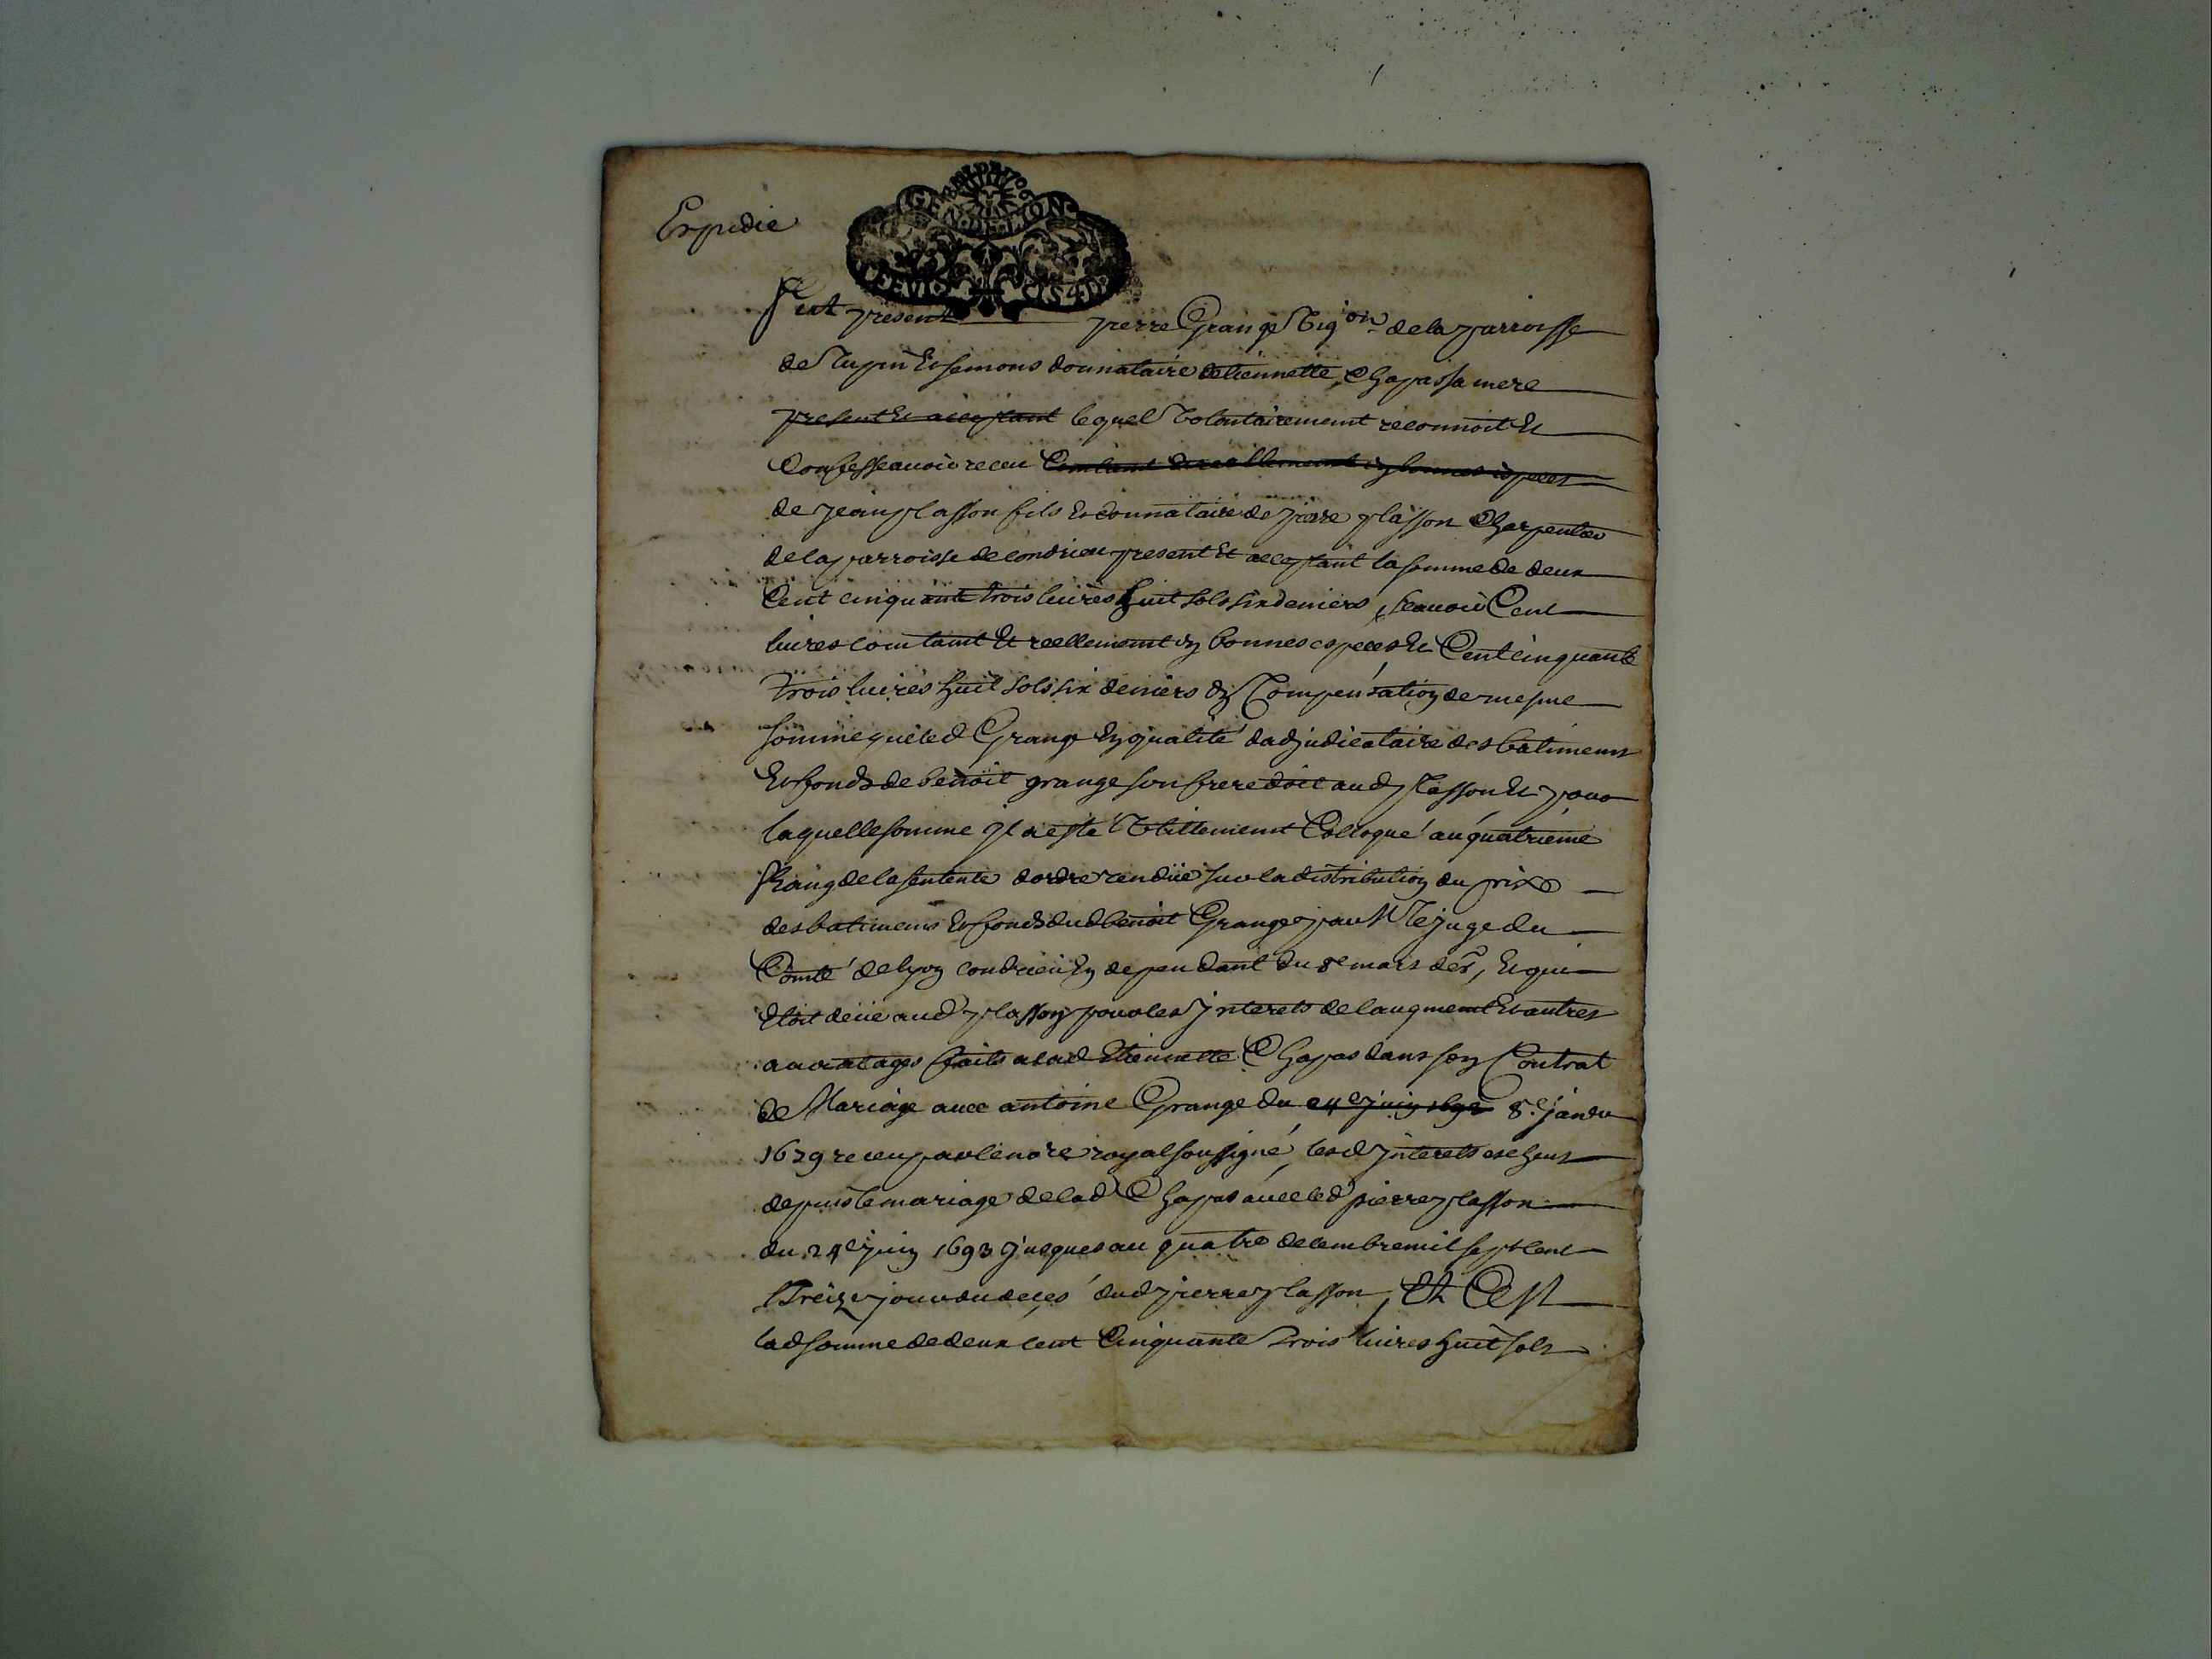 Expedie
GEN. DE LION
Fut present pierre Grange Vigon de la parroisse
de Tupin Et semons donnataire detiennette Chapas sa mere
present Et acceptant lequel Volontairement reconnoit Et
Confesse auoir receu Comtant Et reellement en bonnes especes
de jean plasson fils Et donnataire de pierre plasson Charpentier
de la parroisse de condrieu present Et acceptant la somme de deux
Cent cinquante trois liures huit sols six deniers, scauoir Cent
liures comtant Et reellement en bonnes especes Et Cent cinquante
trois liures huit sols six deniers En Compensation de mesme
somme que led Grange En qualité dadjudicataire des batimens
Et fonds de benoit grange son frere doit aud plasson Et pour
laquelle somme Jl a esté Vtillement Colloqué au quatrieme
Rang de la sentence dordre rendüe sur la distribution du prix
des batimens Et fonds dud benoit Grange par Mr le juge du
Comté de lyon condrieu En dependant du 8e mars der, Et qui
Etoit deüe aud plasson pour les Jnterets de laugment Et autres
auantages faits a lad Etiennette Chapas dans son Contrat
de Mariage auec antoine Grange du 24e juin 1692 8e janvr
1679 receu par le nore royal soussigné, lesd Jnterets escheus
depuis le mariage de lad Chapas auec led pierre plasson
du 24e juin 1693 jusques au quatre decembre mil sept cent
Treize jour du deces dud pierre plasson, Et Cest
lad somme de deux cent Cinquante trois liures huit sols